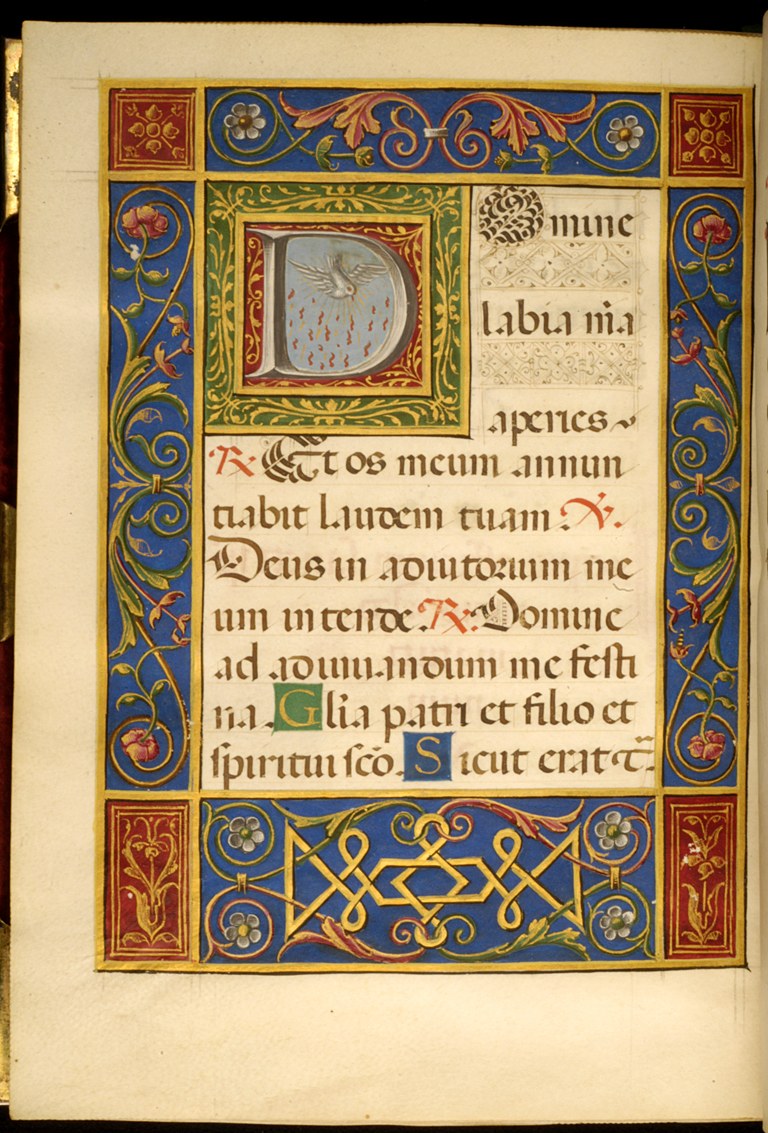 DOmine
labia m̃a
aperies
R Et os meum annun
tiabit laudem tuam. V.
Deus in adiutorium me
um intende. R. Domine
ad adiuuandum me festi
na. Glia patri et filio et
spiritui sc̃o. Sicut erat τ̃.